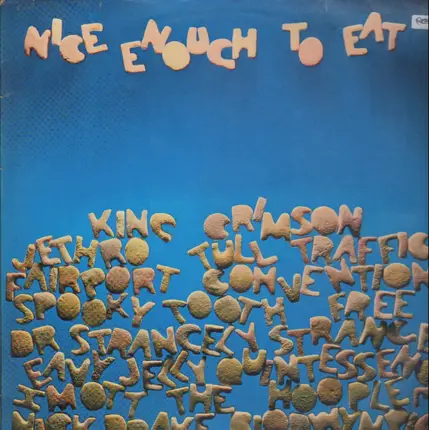 NICE ENOUGH TO EAT
KING CRIMSON
JETHRO TULL TRAFFIC
FAIRPORT CONVENTION
SPOOKY TOOTH FREE
DR STRANGELY STRANGE
EAVY JELLY QUINTESSEN
MOTT THE HOOPLE
NICK DRAKE